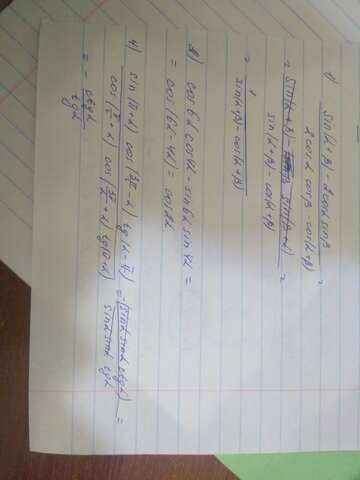 б) sin(α+β) - 2cosα sinβ / 2cosα cosβ - cos(α+β) =
= sin(α+β) - sin(β+α) / sin(α+β) - cos(α+β) =
= sin(α+β) - cos(α+β)
в) cos6α cos4α - sin6α sin4α =
= cos(6α - 4α) = cos2α
4) sin(π+α) cos(3π/2 - α) tg(α - π/2) / cos(π/2 + α) cos(3π/2 + α) tg(π+α) = -(sinα sinα ctgα) / sinα sinα tgα =
= - ctgα / tgα